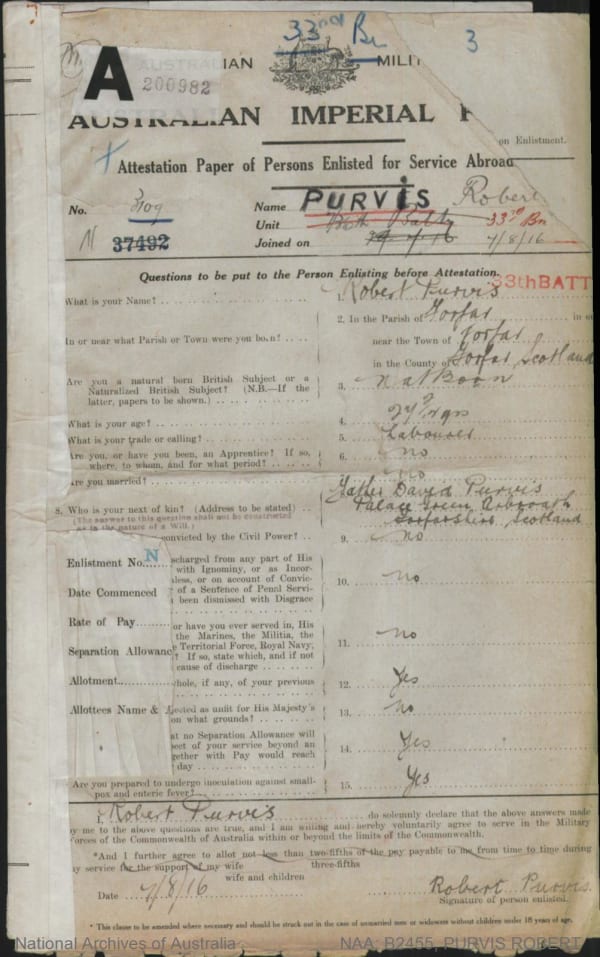 33rd Bn
3
A
AUSTRALIAN MILIT
200982
AUSTRALIAN IMPERIAL F
on Enlistment.
Attestation Paper of Persons Enlisted for Service Abroad
No. 3109 Name PURVIS Robert
Unit 33rd Bn
N 37492 Joined on 7/8/16
Questions to be put to the Person Enlisting before Attestation.
33th BATT
What is your Name? 1. Robert Purvis
2. In the Parish of Forfar in or
In or near what Parish or Town were you born? near the Town of Forfar
in the County of Forfar, Scotland
Are you a natural born British Subject or a
Naturalized British Subject? (N.B.—If the
latter, papers to be shown.) 3. Nat Born
What is your age? 4.
What is your trade or calling? 5. Labourer
Are you, or have you been, an Apprentice? If so,
where, to whom, and for what period? 6. no
Are you married? no
8. Who is your next of kin? (Address to be stated) Father David Purvis
(The answer to this question shall not be constructed
as in the nature of a Will.)
Palace Green Arbroath
Forfarshire, Scotland
convicted by the Civil Power? 9. no
Enlistment No. N
scharged from any part of His
with Ignominy, or as Incor-
less, or on account of Convic-
of a Sentence of Penal Servi-
been dismissed with Disgrace 10. no
Date Commenced
Rate of Pay
or have you ever served in, His
the Marines, the Militia, the
Territorial Force, Royal Navy,
? If so, state which, and if not
cause of discharge 11. no
Separation Allowance
Allotment
whole, if any, of your previous
12. Yes
Allottees Name &
jected as unfit for His Majesty's
on what grounds? 13. no
at no Separation Allowance will
pect of your service beyond an
gether with Pay would reach
day 14. Yes
Are you prepared to undergo inoculation against small-
pox and enteric fever? 15. Yes
I, Robert Purvis do solemnly declare that the above answers made
by me to the above questions are true, and I am willing and hereby voluntarily agree to serve in the Military
Forces of the Commonwealth of Australia within or beyond the limits of the Commonwealth.
*And I further agree to allot not less than two-fifths of the pay payable to me from time to time during
three-fifths
my service for the support of my wife
wife and children
Date 7/8/16 Robert Purvis.
Signature of person enlisted.
* This clause to be amended where necessary and should be struck out in the case of unmarried men or widowers without children under 18 years of age.
National Archives of Australia NAA: B2455, PURVIS ROBERT